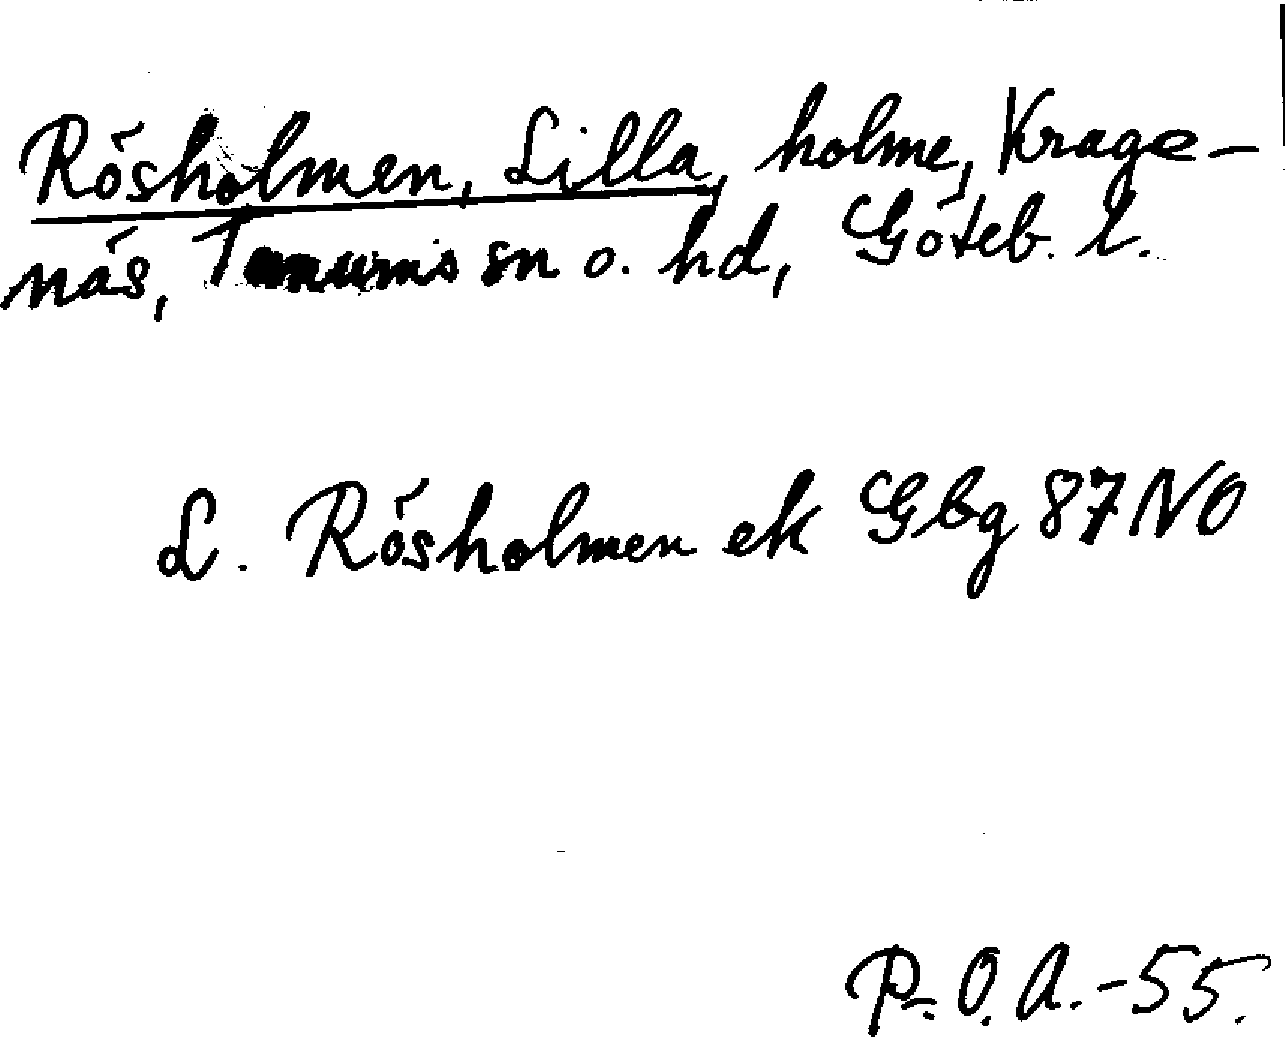 Rösholmen, Lilla, holme, Krage-
näs, Tanums sn o. hd, Göteb. l.
L. Rösholmen ek Gbg 87 NO
P.O.A.-55.